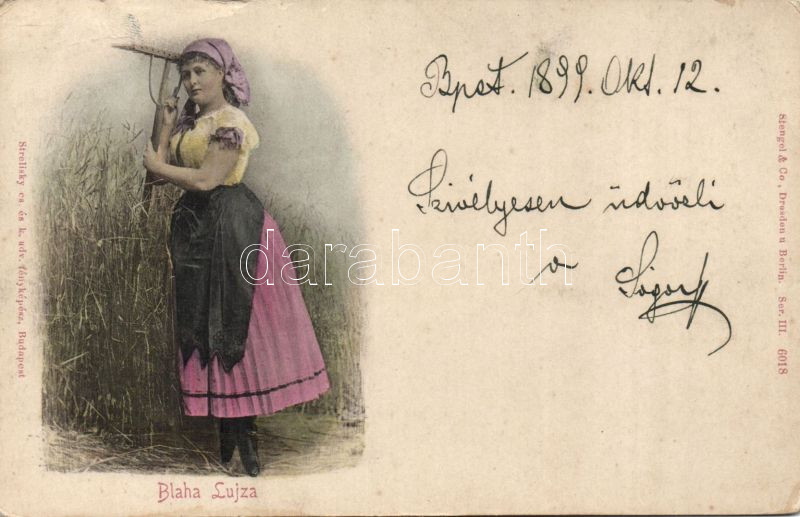 Bpest. 1899. Okt. 12.
Szivélyesen üdvözli
a Sógor
Strelisky cs. és k. udv. fényképész, Budapest
Stengel & Co, Dresden u Berlin. Ser. III. 6018
darabanth
Blaha Lujza